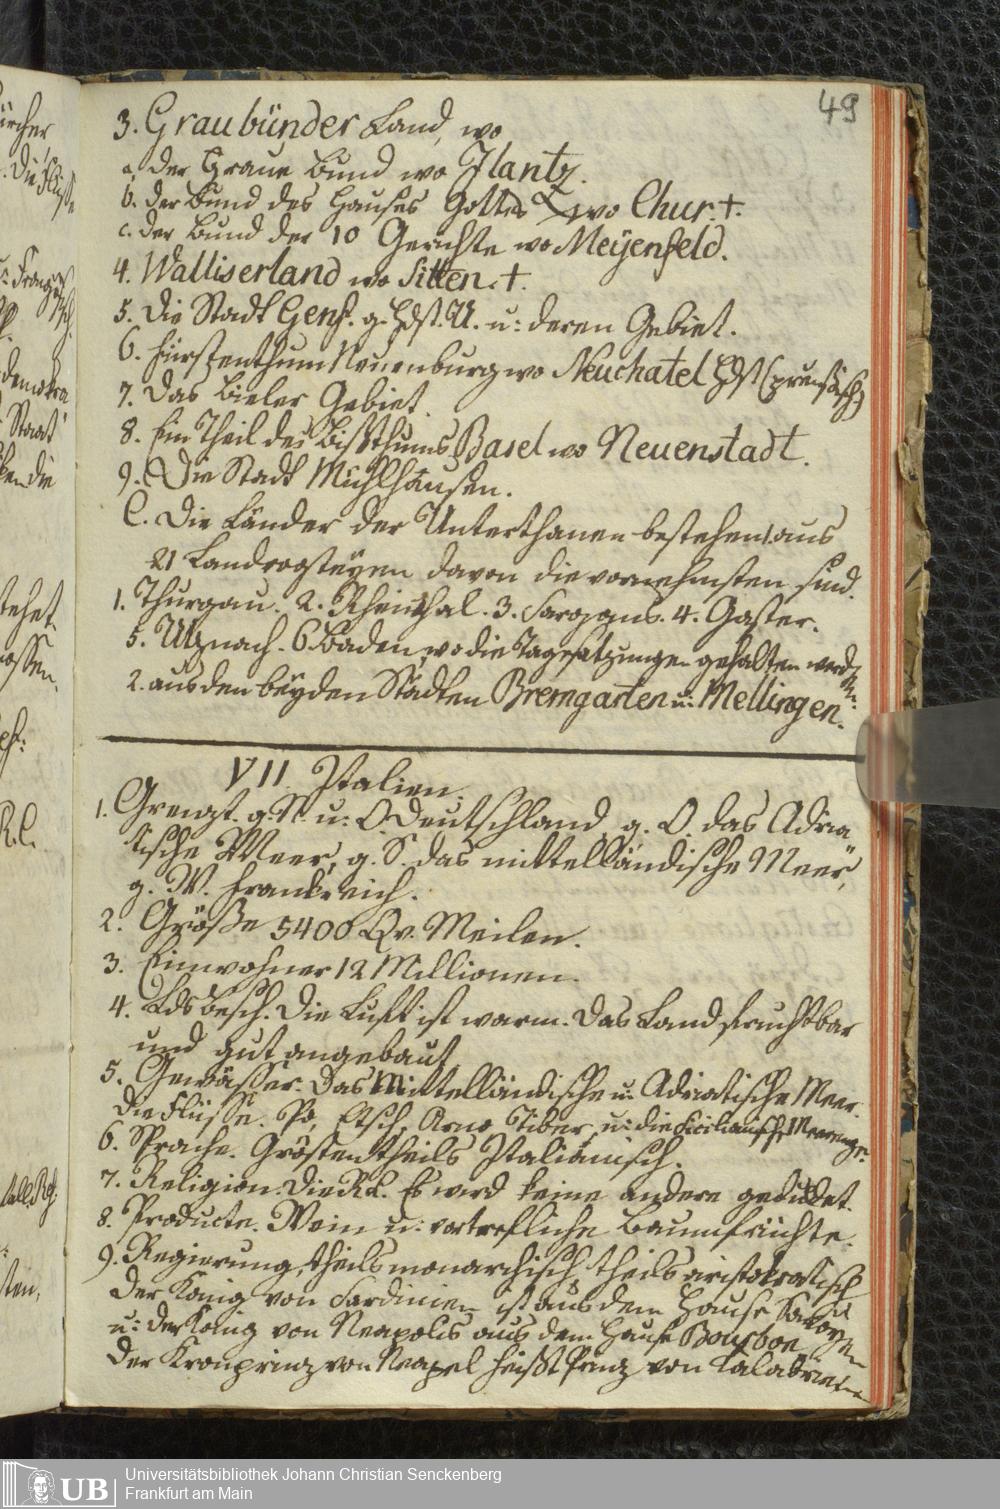 49
3. Graubünder Land, wo
a. der Graue Bund wo Ilantz.
b. der Bund des Hauses Gottes wo Chur. †.
c. der Bund der 10 Gerichte wo Meyenfeld.
4. Walliserland wo Sitten. †.
5. Die Stadt Genf. g. Hdst. U. u: deren Gebiet.
6. Fürstenthum Neuenburg wo Neuchatel Hdst (preußisch)
7. Das Bieler Gebiet.
8. Ein Theil des Bißthums Basel wo Neuenstadt.
9. Die Stadt Mühlhausen.
C. Die Länder der Unterthanen bestehen 1. aus
21 Landvogteyen davon die vornehmsten sind.
1. Thurgau. 2. Rheinthal. 3. Sargans. 4. Gaster.
5. Utznach. 6 Baden, wo die Tagesatzungen gehalten werden:
2. aus den beyden Städten Bremgarten u: Mellingen.
VII Italien.
1. Grenzt. g. N. u: O Deutschland, g. O. das Adria
tische Meer, g. S. das mittelländische Meer,
g. W. Frankreich.
2. Größe 5400 Qv. Meilen.
3. Einwohner 12 Millionen.
4. Lds besch. Die Luft ist warm. Das Land fruchtbar
und gut angebaut
5. Gewässer. Das Mittelländische u: Adriatische Meer.
Die Flüsse. Po, Etsch, Arno, Tiber, u: die Sicilianische Meerenge.
6. Sprache. Gröstentheils Italiänisch.
7. Religion. Die RK. Es wird keine andere geduldet.
8. Producte. Wein u: vortrefliche Baumfrüchte.
9. Regierung, theils monarchisch, theils aristokratisch
Der König von Sardinien ist aus dem Hause Savoyen
u: der König von Neapolis aus dem Hause Bourbon
Der Kronprinz von Neapel heißt Prinz von Calabrien
UB
Universitätsbibliothek Johann Christian Senckenberg
Frankfurt am Main